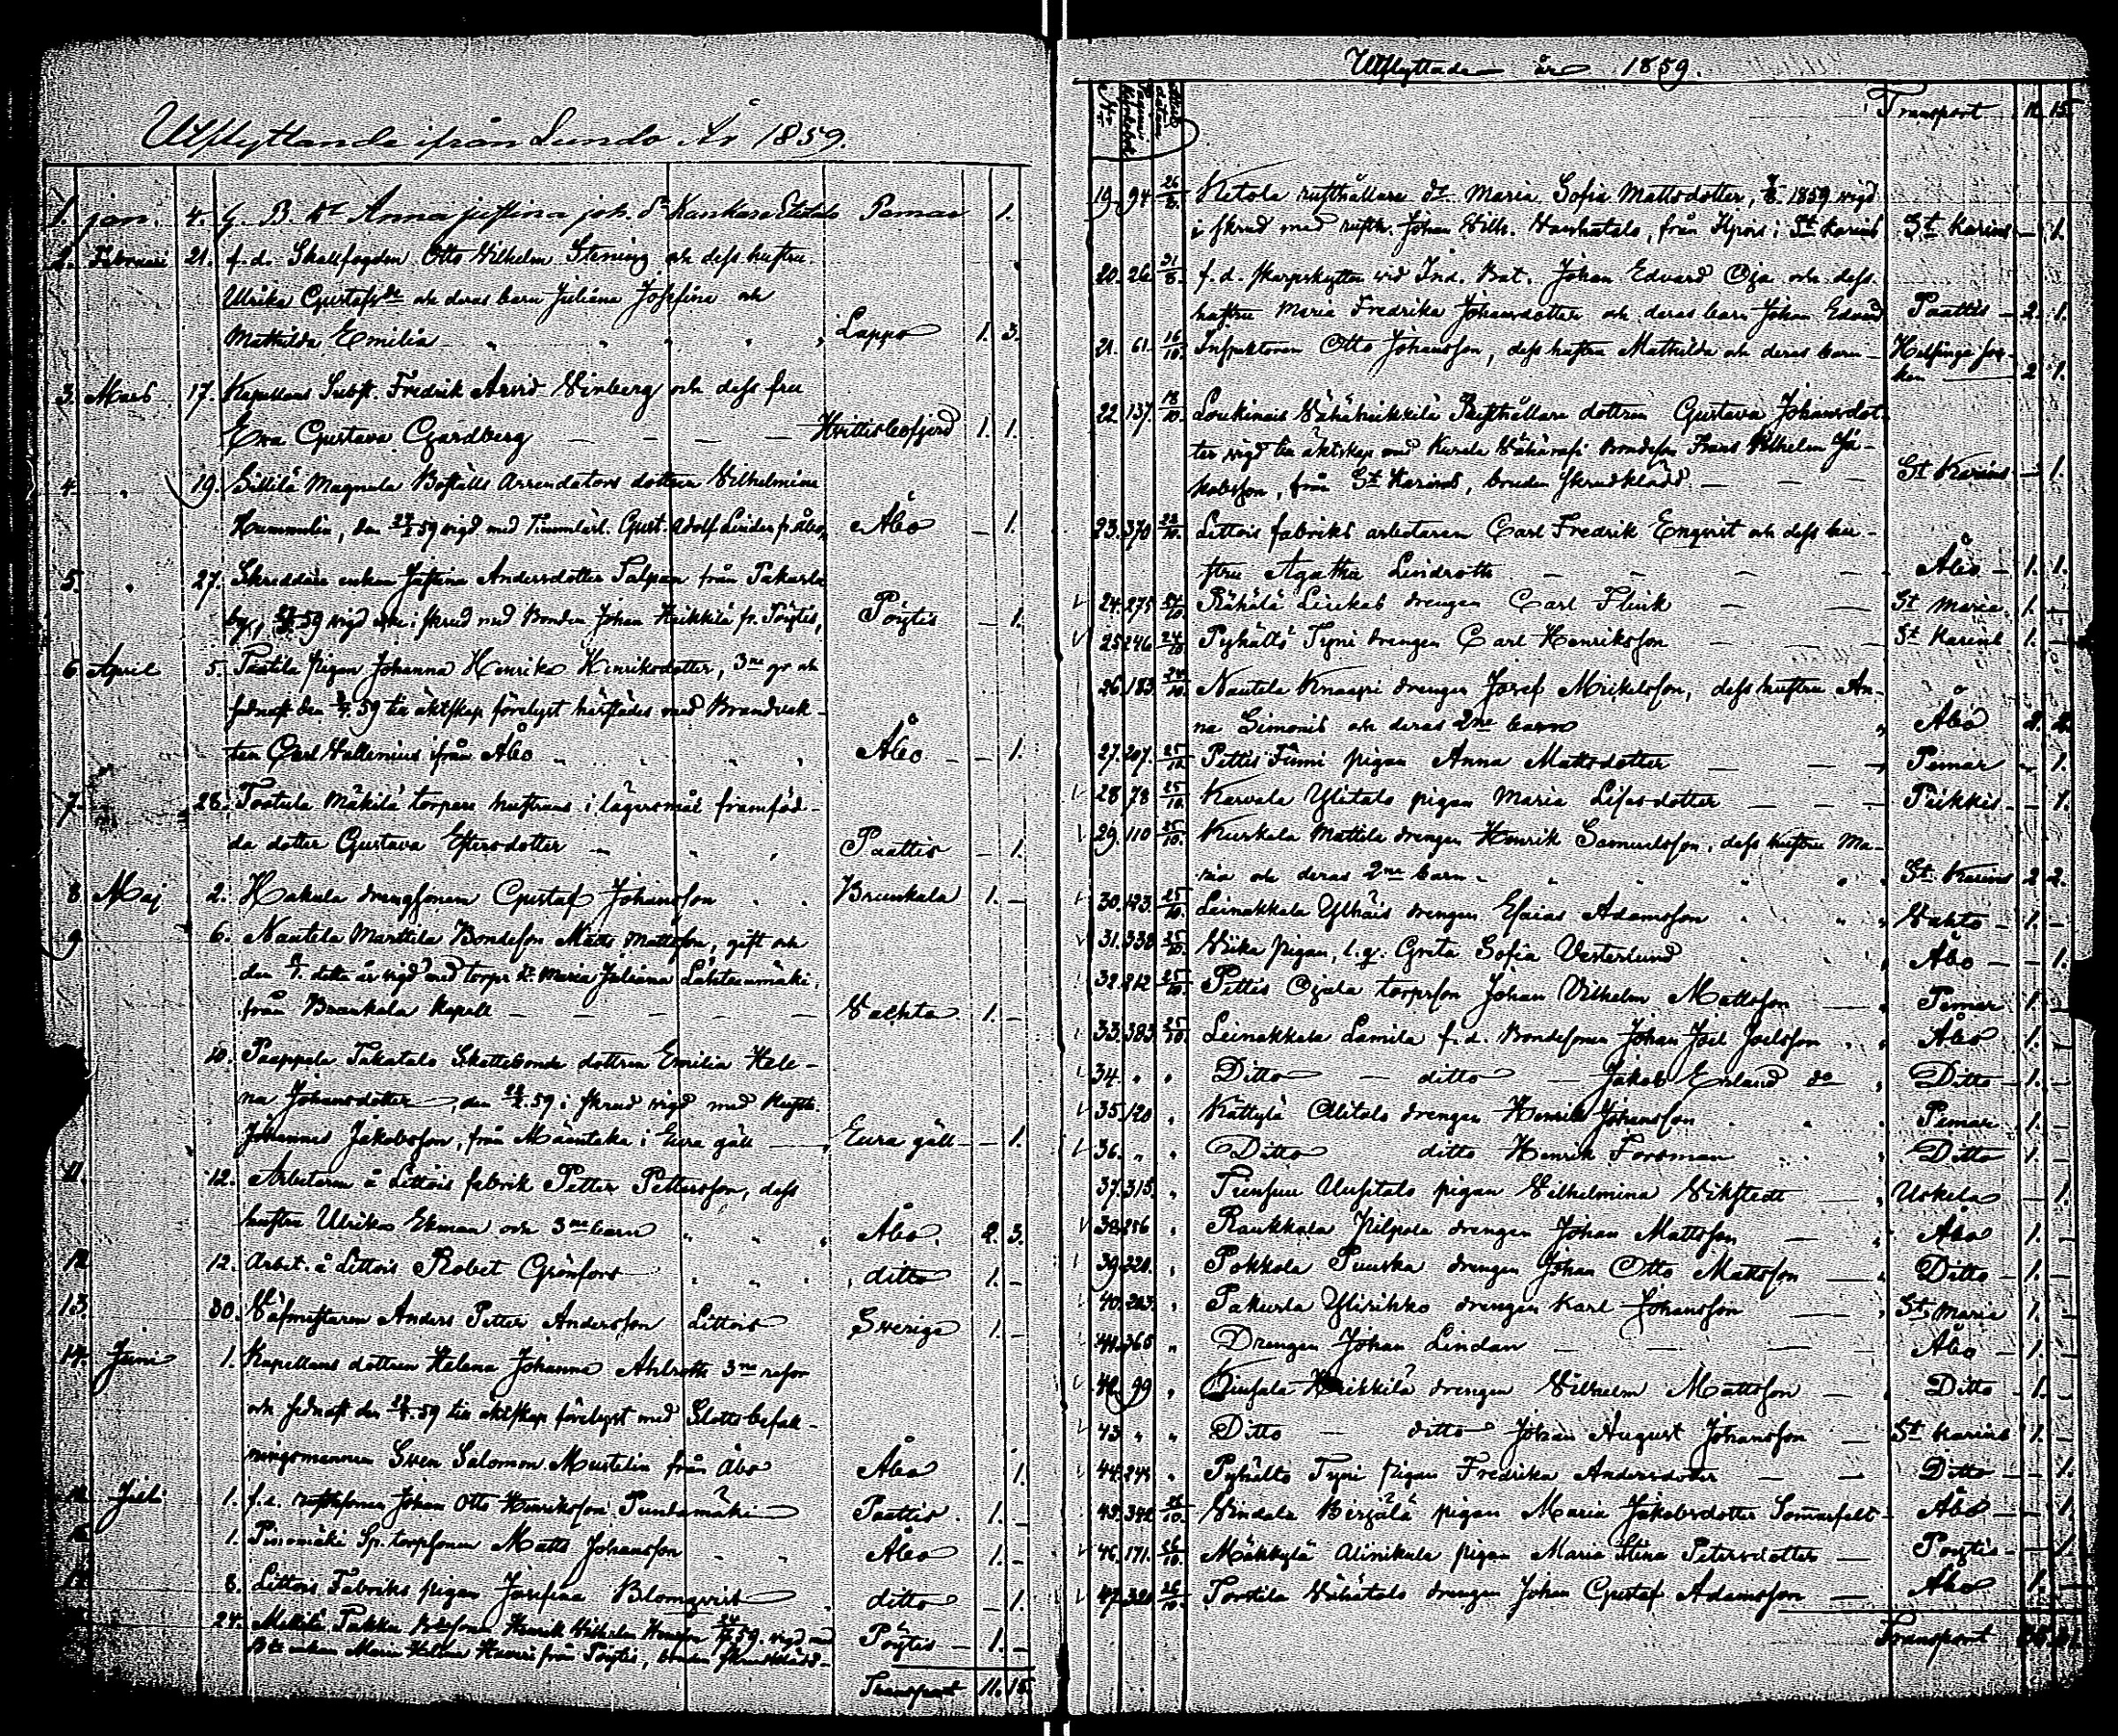 Utflyttande ifrån Lundo År 1859.
1. jan. 4. G. B. dr Anna justina joh. dr Kankare Etalo Pemar 1.
2. Februari 21. f.d. Skallfogden Otto Wilhelm Stening och dess hustru
Ulrika Gustafsdr och deras barn Juliana Josefina och
Mathilda Emilia Lappo 1. 3.
3. Mars 17. Kapellans Subst. Fredrik Arvid Winberg och dess fru
Eva Gustava Gardberg Hvittisbofjerd 1. 1.
4. " 19. Sillilä Magnula Boställs Arrendators dottren Vilhelmina
Hummelin, den 59 vigd med Gust. Adolf Linden fr. Åbo, Åbo – 1.
5. " 27. Skreddare enkan Justina Andersdotter Salpan från Pakurla
by, 59 vigd icke i skrud med Bonden Johan Heikkilä fr. Pöytis, Pöytis – 1.
6 April 5. Paatila pigan Johanna Henrika Henriksdotter, 3ne gr och
sednast den 59 till äktskap förelyst härstädes med Brandvak-
ten Carl Wallenius ifrån Åbo Åbo – 1.
7. 28. Tostula Mäkilä torpare hustruns i lägersmål framföd-
da dotter Gustava Estersdotter Paattis – 1.
8 Maj 2. Hakula drengsonen Gustaf Johansson Brunkala 1. –
9 6. Nautela Marttila Bondeson Matts Mattsson, gift och
den detta år vigd med torpr dr Maria Juliana Lähteenmäki
från Brunkala Kapell Vachta 1. –
10. Paappala Takatalo Skattebonde dottren Emilia Hele-
na Johansdotter, den 59 i skrud vigd med Rusth.
Johannes Jakobsson, från Mäentaka i Eura gäll Eura gäll – 1.
11. 12. Arbetaren å Littois fabrik Petter Pettersson, dess
hustru Ulrika Ekman och 3ne barn Åbo. 2. 3.
12 12. Arbet. å Littois Robet Grönfors ditto 1. –
13. 30. Väfmästaren Anders Petter Andersson Littois Sverige 1. –
14. Juni 1. Kapellans dottren Helena Johanna Ahlroth 3ne resor
och sednast den 59 till äktskap förelyst med Slottsbefall-
ningsmannen Sven Salomon Mustelin från Åbo Åbo 1.
Juli 1. f.d. rusthsonen Johan Otto Henriksson Pundamäki Paattis. 1. –
16. 1. Pisomäki Sp. torpsonen Matts Johansson Åbo 1. –
17 8. Littois Fabriks pigan Josefina Blomqvist ditto – 1.
24. Mikkilä Pakka Henrik Wilhelm 59. vigd med Pöytis – 1. –
enkan Maria Helena från Pöytis, bruden skrudklädd –
Transport 11. 15.
Utflyttade år 1859.
Transport 11. 15.
19. 94 26/8. Ketola rusthållare dr. Maria Sofia Mattsdotter, 1859 vigd
i skrud med rusth. Johan Wilh. Vanhatalo, från i St Karins St. Karins – 1.
20. 26 31/8. f.d. skarpskytten vid Ind. Bat. Johan Edvard Oja och dess
hustru Maria Fredrika Johansdotter och deras barn Johan Edvard Paattis – 2. 1.
21. 61. 16/10. Inspektoren Otto Johansson, dess hustru Mathilda och deras barn – Helsinge soc-
ken 2 1.
22. 137. 18/10. Loukinais Vähäheikkilä Rusthållare dottren Gustava Johansdot-
ter vigd till äktskap med Kurala Bondeson Frans Wilhelm Ja-
kobsson, från St Karins, bruden skrudklädd St Karins – 1.
23. 370 22/10. Littois fabriks arbetaren Carl Fredrik Enqvist och dess hu-
stru Agatha Lindroth Åbo – 1. 1.
24. 275 24/10. Rähälä Liukas drengen Carl Flink St Maria. 1. –
25 246 24/10 Pyhältö Tyni drengen Carl Henriksson St Karins 1. –
26. 183. 24/10. Nautela Knaapi drengen Josef Mickelsson, dess hustru An-
na Simons och deras 2ne barn Åbo 2. 2.
27. 207. 25/10 Pettis Fumi pigan Anna Mattsdotter Pemar – 1.
28 78 25/10. Karvala Ylitalo pigan Maria Lisasdotter Piikkis – 1.
29. 110 25/10. Kurkala Mattila drengen Henrik Samuelsson, dess hustru Ma-
ria och deras 2ne barn – St. Karins 2 2.
30. 123. 25/10. Leinakkala Ylhäis drengen Esaias Adamsson Vahto – 1. –
31. 338 25/10. Viika pigan, l.q. Greta Sofia Vesterlund Åbo – – 1.
32. 212 25/10. Pettis Ojala torpson Johan Vilhelm Mattsson Pemar 1. –
33. 383. 25/10. Leinakkala Lamila f.d. Bondesonen Johan Joel Joelsson Åbo 1. –
34. " " Ditto – ditto – Jakob Erland do Ditto – 1. –
35. 120 " Kättylä Alitalo drengen Henrik Johansson Pemar 1. –
36. " " Ditto ditto Henrik Forsman Ditto 1. –
37. 315. " Alusitalo pigan Vilhelmina Vikstedt Uskela – 1.
38. 256 " Raukkala Pilpola drengen Johan Mattsson Åbo 1. –
39. 220. " Pokkola Puuska drengen Johan Otto Mattsson Ditto – 1. –
40. 203. " Pakurla Ylirihko drengen Karl Johansson St. Maria 1. –
41. 365 " Drengen Johan Lindan Åbo – 1. –
42. 99 " Heikkilä drengen Vilhelm Mattsson Ditto – 1. –
43 " " Ditto – ditto Johan August Johansson St Karins 1. –
44. 245 " Pyhältö Tyni pigan Fredrika Andersdotter Ditto – – 1.
45. 342 26/10. Vindala Birjälä pigan Maria Jakobsdotter Somarfelt Åbo – – 1
46. 171. 26/10. Mäkkylä Alinikula pigan Maria Stina Petersdotter Pöytis – – 1
47. 320 26/10. Torstila Vähätalo drengen Johan Gustaf Adamsson Åbo 1. –
Transport